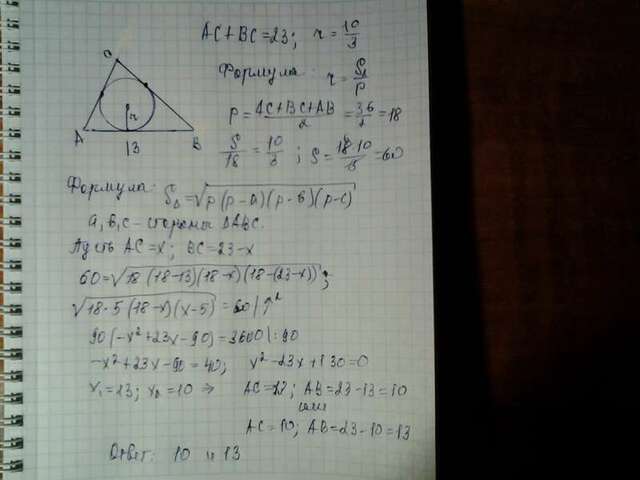 AC+BC=23; r = 10/3
Формула: r = S∆/p
P = AC+BC+AB/2 = 36/2 = 18
C
A
B
r
13
S/18 = 10/3; S = 18·10/3 = 60
Формула: S∆ = √p(p-a)(p-b)(p-c)
a, b, c - стороны ∆ABC.
Пусть AC = x; BC = 23-x
60 = √18(18-13)(18-x)(18-(23-x));
√18·5(18-x)(x-5) = 60 |↑²
90(-x²+23x-90) = 3600 |:90
-x²+23x-90 = 40; x²-23x+130=0
x₁=23; x₂=10 ⇒ AC=; AB=23-13=10
или
AC=10; AB=23-10=13
Ответ: 10 и 13